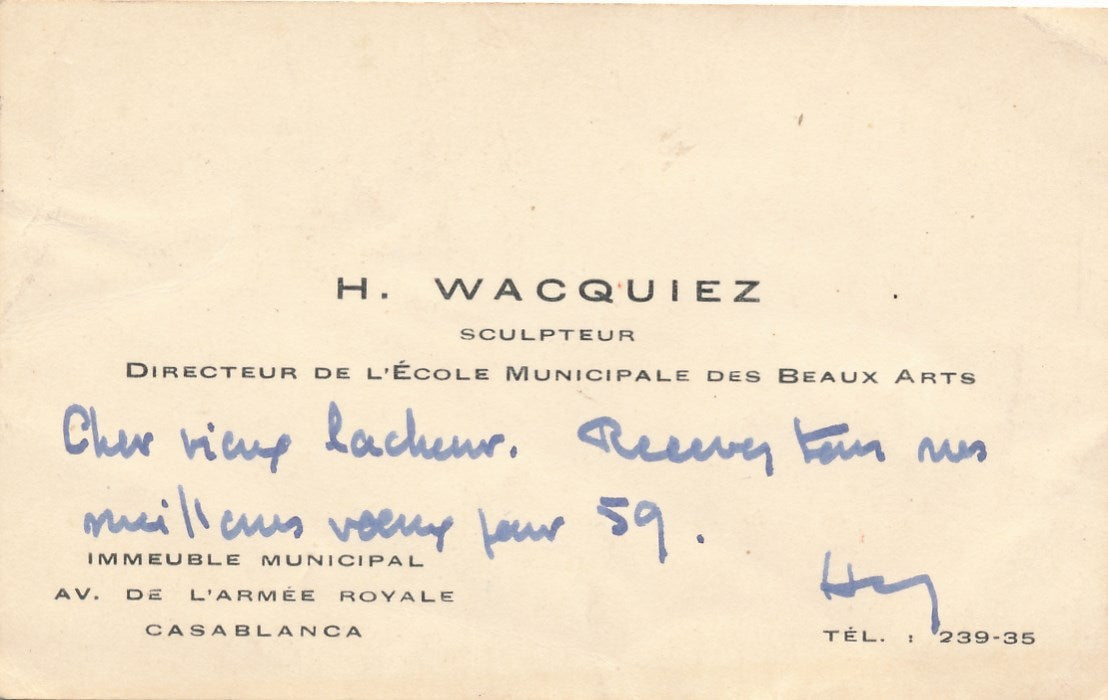 H. WACQUIEZ
SCULPTEUR
DIRECTEUR DE L'ÉCOLE MUNICIPALE DES BEAUX ARTS
Cher vieux lacheur. Recevez tous nos
meilleurs voeux pour 59.
IMMEUBLE MUNICIPAL
AV. DE L'ARMÉE ROYALE
CASABLANCA
TÉL. : 239-35